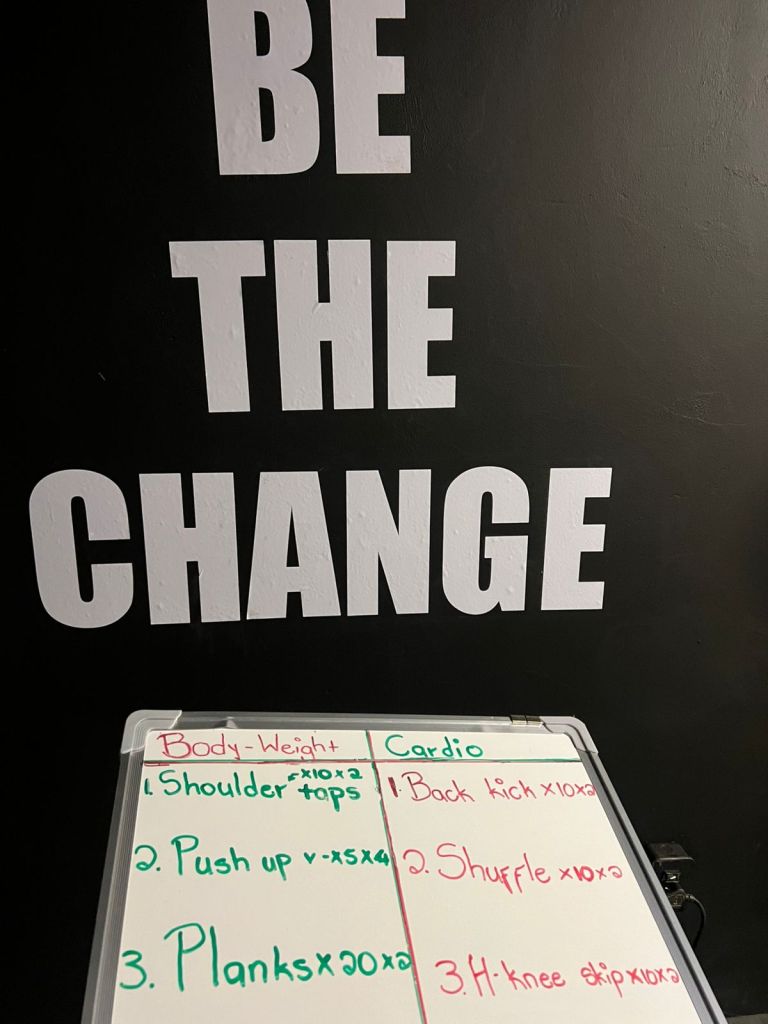 BE
THE
CHANGE
Body-Weight
1. Shoulder taps x10x2
2. Push up v-x5x4
3. Planks x20x2
Cardio
1. Back kick x10x2
2. Shuffle x10x2
3. H-knee skip x10x2